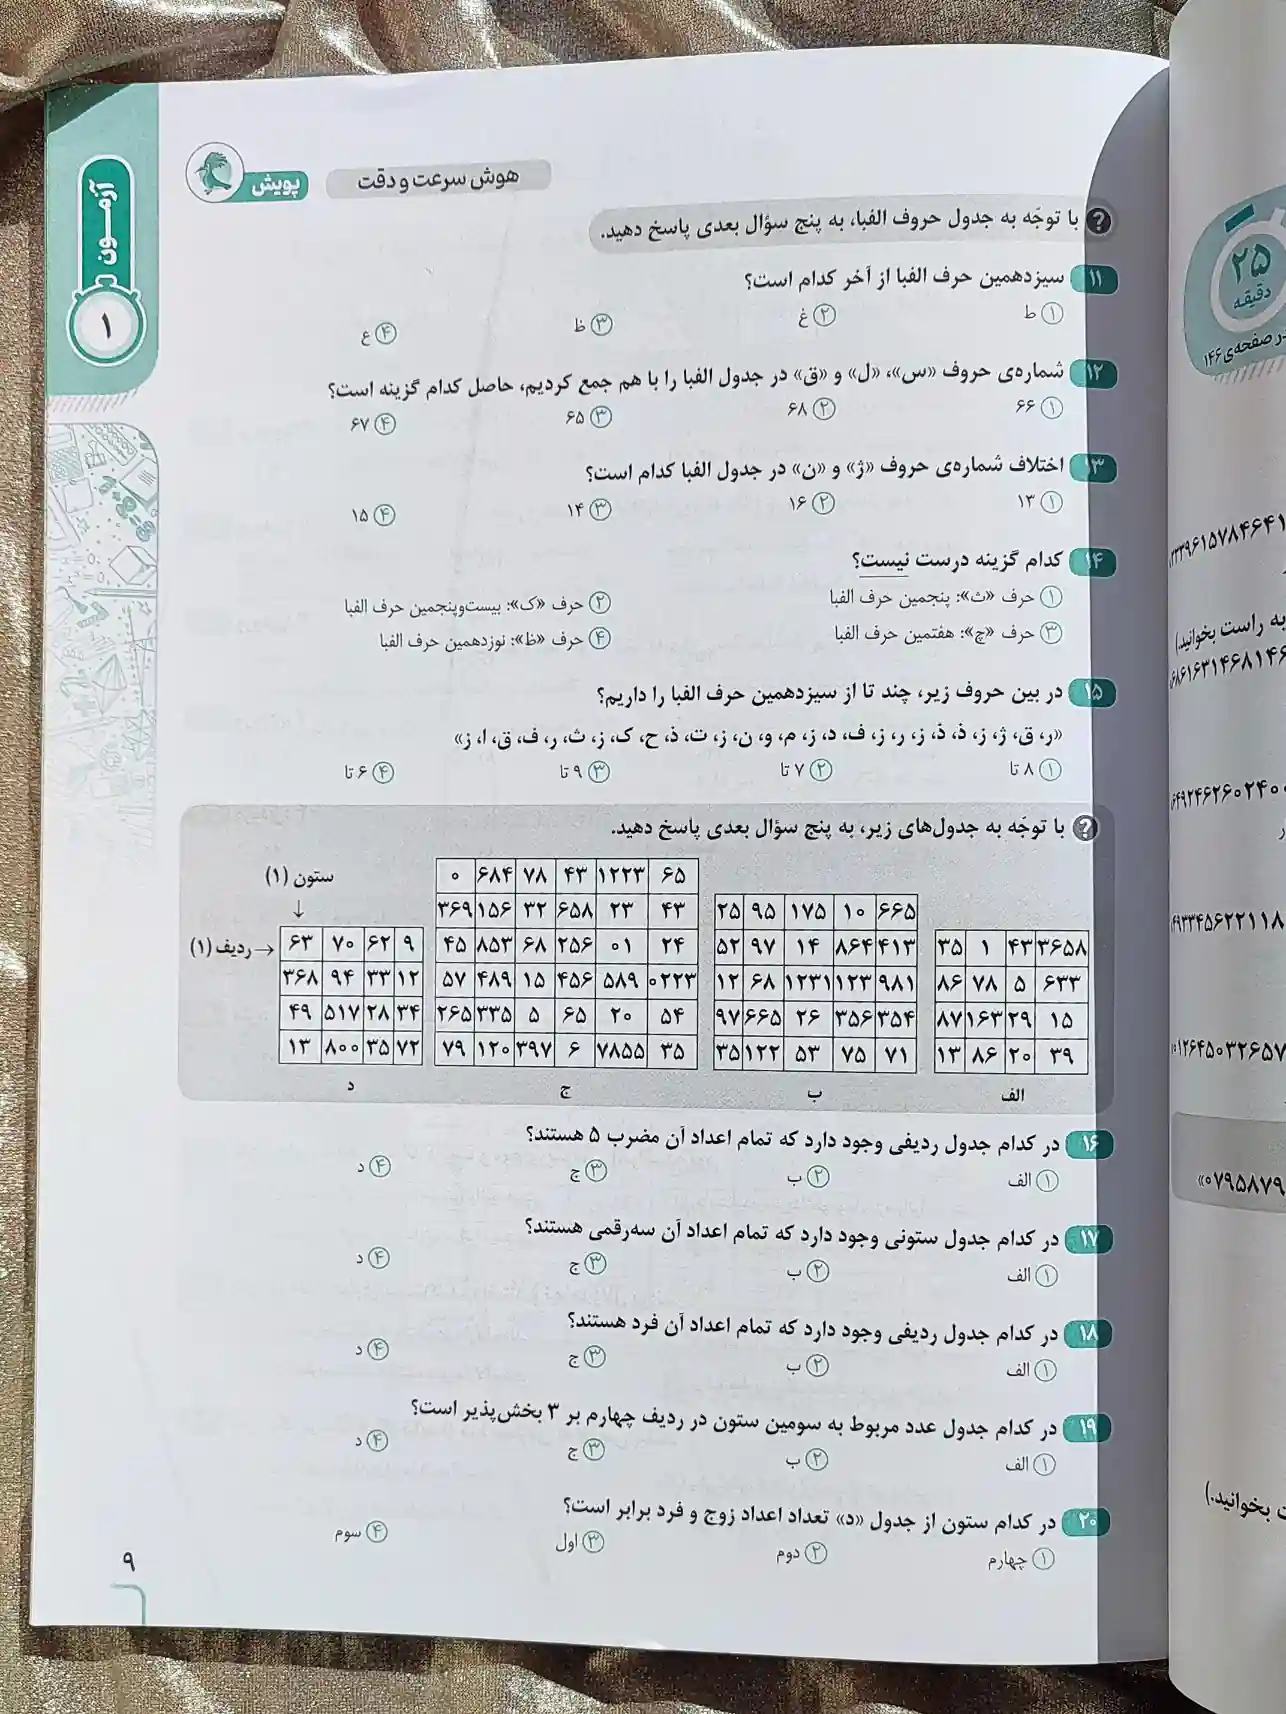 آزمـــون
۱
هوش سرعت و دقت
پویش
با توجّه به جدول حروف الفبا، به پنج سؤال بعدی پاسخ دهید.
۱۱ سیزدهمین حرف الفبا از آخر کدام است؟
۱) ط ۲) غ ۳) ظ ۴) ع
۱۲ شماره‌ی حروف «س»، «ل» و «ق» در جدول الفبا را با هم جمع کردیم، حاصل کدام گزینه است؟
۱) ۶۶ ۲) ۶۸ ۳) ۶۵ ۴) ۶۷
۱۳ اختلاف شماره‌ی حروف «ژ» و «ن» در جدول الفبا کدام است؟
۱) ۱۳ ۲) ۱۶ ۳) ۱۴ ۴) ۱۵
۱۴ کدام گزینه درست نیست؟
۱) حرف «ث»: پنجمین حرف الفبا ۲) حرف «ک»: بیست‌وپنجمین حرف الفبا
۳) حرف «چ»: هفتمین حرف الفبا ۴) حرف «ظ»: نوزدهمین حرف الفبا
۱۵ در بین حروف زیر، چند تا از سیزدهمین حرف الفبا را داریم؟
«ر، ق، ژ، ز، ذ، ذ، ز، ر، ز، ف، د، ز، م، و، ن، ز، ت، ذ، ح، ک، ز، ث، ر، ف، ق، ا، ز»
۱) ۸ تا ۲) ۷ تا ۳) ۹ تا ۴) ۶ تا
با توجّه به جدول‌های زیر، به پنج سؤال بعدی پاسخ دهید.
ستون (۱)
ردیف (۱)
۶۳ ۷۰ ۶۲ ۹
۳۶۸ ۹۴ ۳۳ ۱۲
۴۹ ۵۱۷ ۲۸ ۳۴
۱۳ ۸۰۰ ۳۵ ۷۲
د
۰ ۶۸۴ ۷۸ ۴۳ ۱۲۲۳ ۶۵
۳۶۹ ۱۵۶ ۳۲ ۶۵۸ ۲۳ ۴۳
۴۵ ۸۵۳ ۶۸ ۲۵۶ ۰۱ ۲۴
۵۷ ۴۸۹ ۱۵ ۴۵۶ ۵۸۹ ۰۲۲۳
۲۶۵ ۳۳۵ ۵ ۶۵ ۲۰ ۵۴
۷۹ ۱۲۰ ۳۹۷ ۶ ۷۸۵۵ ۳۵
ج
۲۵ ۹۵ ۱۷۵ ۱۰ ۶۶۵
۵۲ ۹۷ ۱۴ ۸۶۴ ۴۱۳
۱۲ ۶۸ ۱۲۳۱ ۱۲۳ ۹۸۱
۹۷ ۶۶۵ ۲۶ ۳۵۶ ۳۵۴
۳۵ ۱۲۲ ۵۳ ۷۵ ۷۱
ب
۳۵ ۱ ۴۳ ۳۶۵۸
۸۶ ۷۸ ۵ ۶۳۳
۸۷ ۱۶۳ ۲۹ ۱۵
۱۳ ۸۶ ۲۰ ۳۹
الف
۱۶ در کدام جدول ردیفی وجود دارد که تمام اعداد آن مضرب ۵ هستند؟
۱) الف ۲) ب ۳) ج ۴) د
۱۷ در کدام جدول ستونی وجود دارد که تمام اعداد آن سه‌رقمی هستند؟
۱) الف ۲) ب ۳) ج ۴) د
۱۸ در کدام جدول ردیفی وجود دارد که تمام اعداد آن فرد هستند؟
۱) الف ۲) ب ۳) ج ۴) د
۱۹ در کدام جدول عدد مربوط به سومین ستون در ردیف چهارم بر ۳ بخش‌پذیر است؟
۱) الف ۲) ب ۳) ج ۴) د
۲۰ در کدام ستون از جدول «د» تعداد اعداد زوج و فرد برابر است؟
۱) چهارم ۲) دوم ۳) اول ۴) سوم
۹
۲۵
دقیقه
در صفحه‌ی ۱۴۶
به راست بخوانید.)
۰۷۹۵۸۷۹»
بخوانید.)